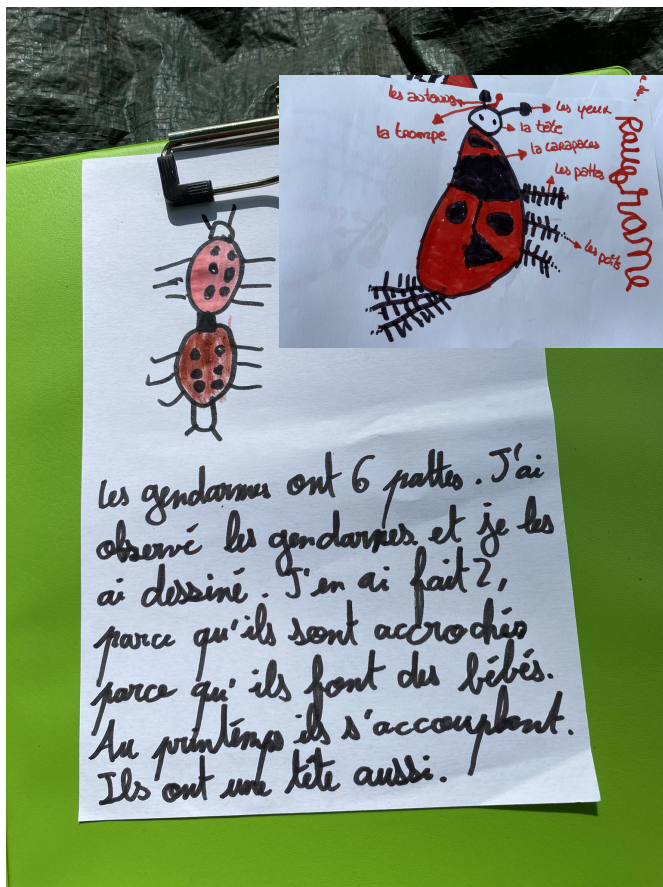 les yeux
la tête
la trompe
la carapaces
les pattes
les poils
Les gendarmes ont 6 pattes. J'ai
observé les gendarmes. et je les
ai dessiné. J'en ai fait 2,
parce qu'ils sont accrochés
parce qu'ils font des bébés.
Au printemps ils s'accouplent.
Ils ont une tête aussi.